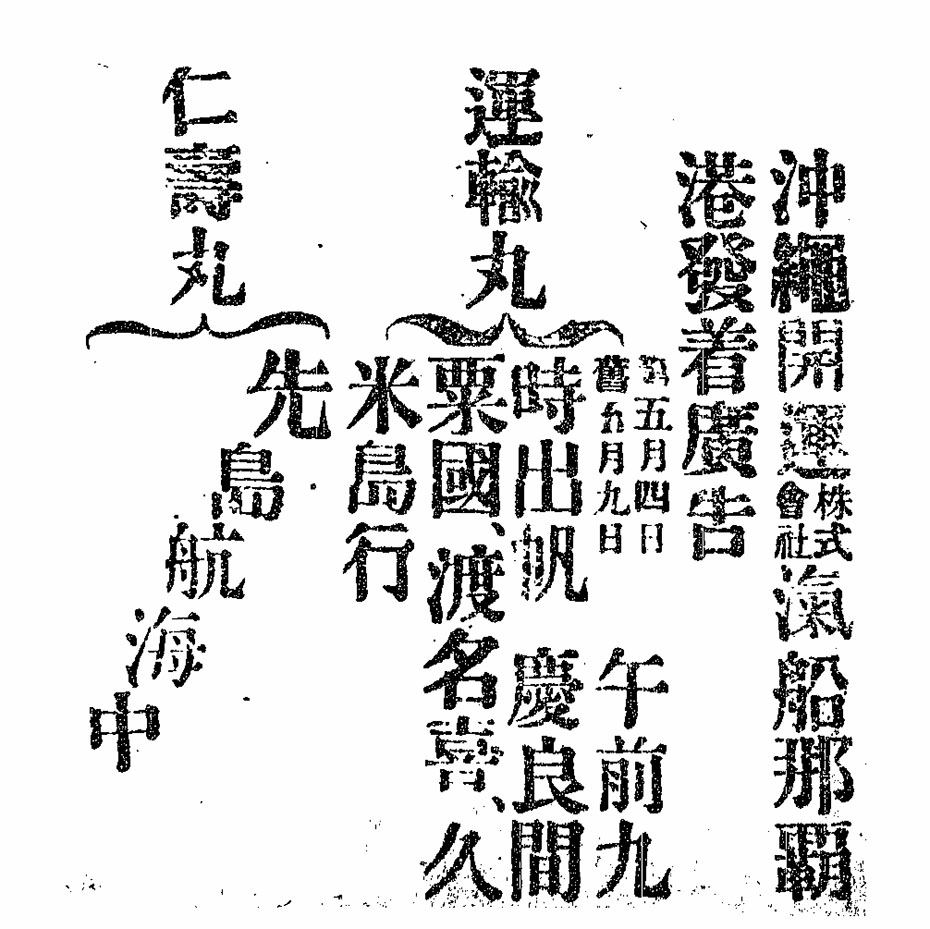 沖繩開運株式會社滊船那覇
港發着廣告
運輸丸
五月四日
舊五月九日
午前九
時出帆　慶良間
粟國、渡名喜、久
米島行
仁壽丸
先島航海中